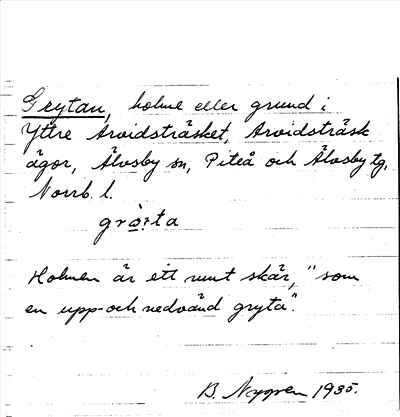 Grytan, holme eller grund i
Yttre Arvidsträsket, Arvidsträsk
ägor, Älvsby sn, Piteå och Älvsby tg,
Norrb. l.
Holmen är ett runt skär, "som
en upp- och nedvänd gryta".
B. Nygren 1935.